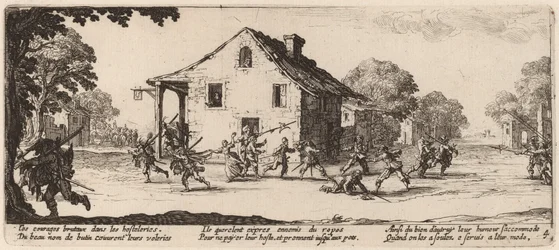 Ces courages brutaux dans les hosteleries.
Du beau nom de butin couurent leurs voleries
Ils querelent expres ennemis du repos
Pour ne payer leur hoste, et prennent iusqu'aux pots.
Ainsi du bien d'autruy leur humeur s'accommode
Quand on les a soulés, e seruis a leur mode,